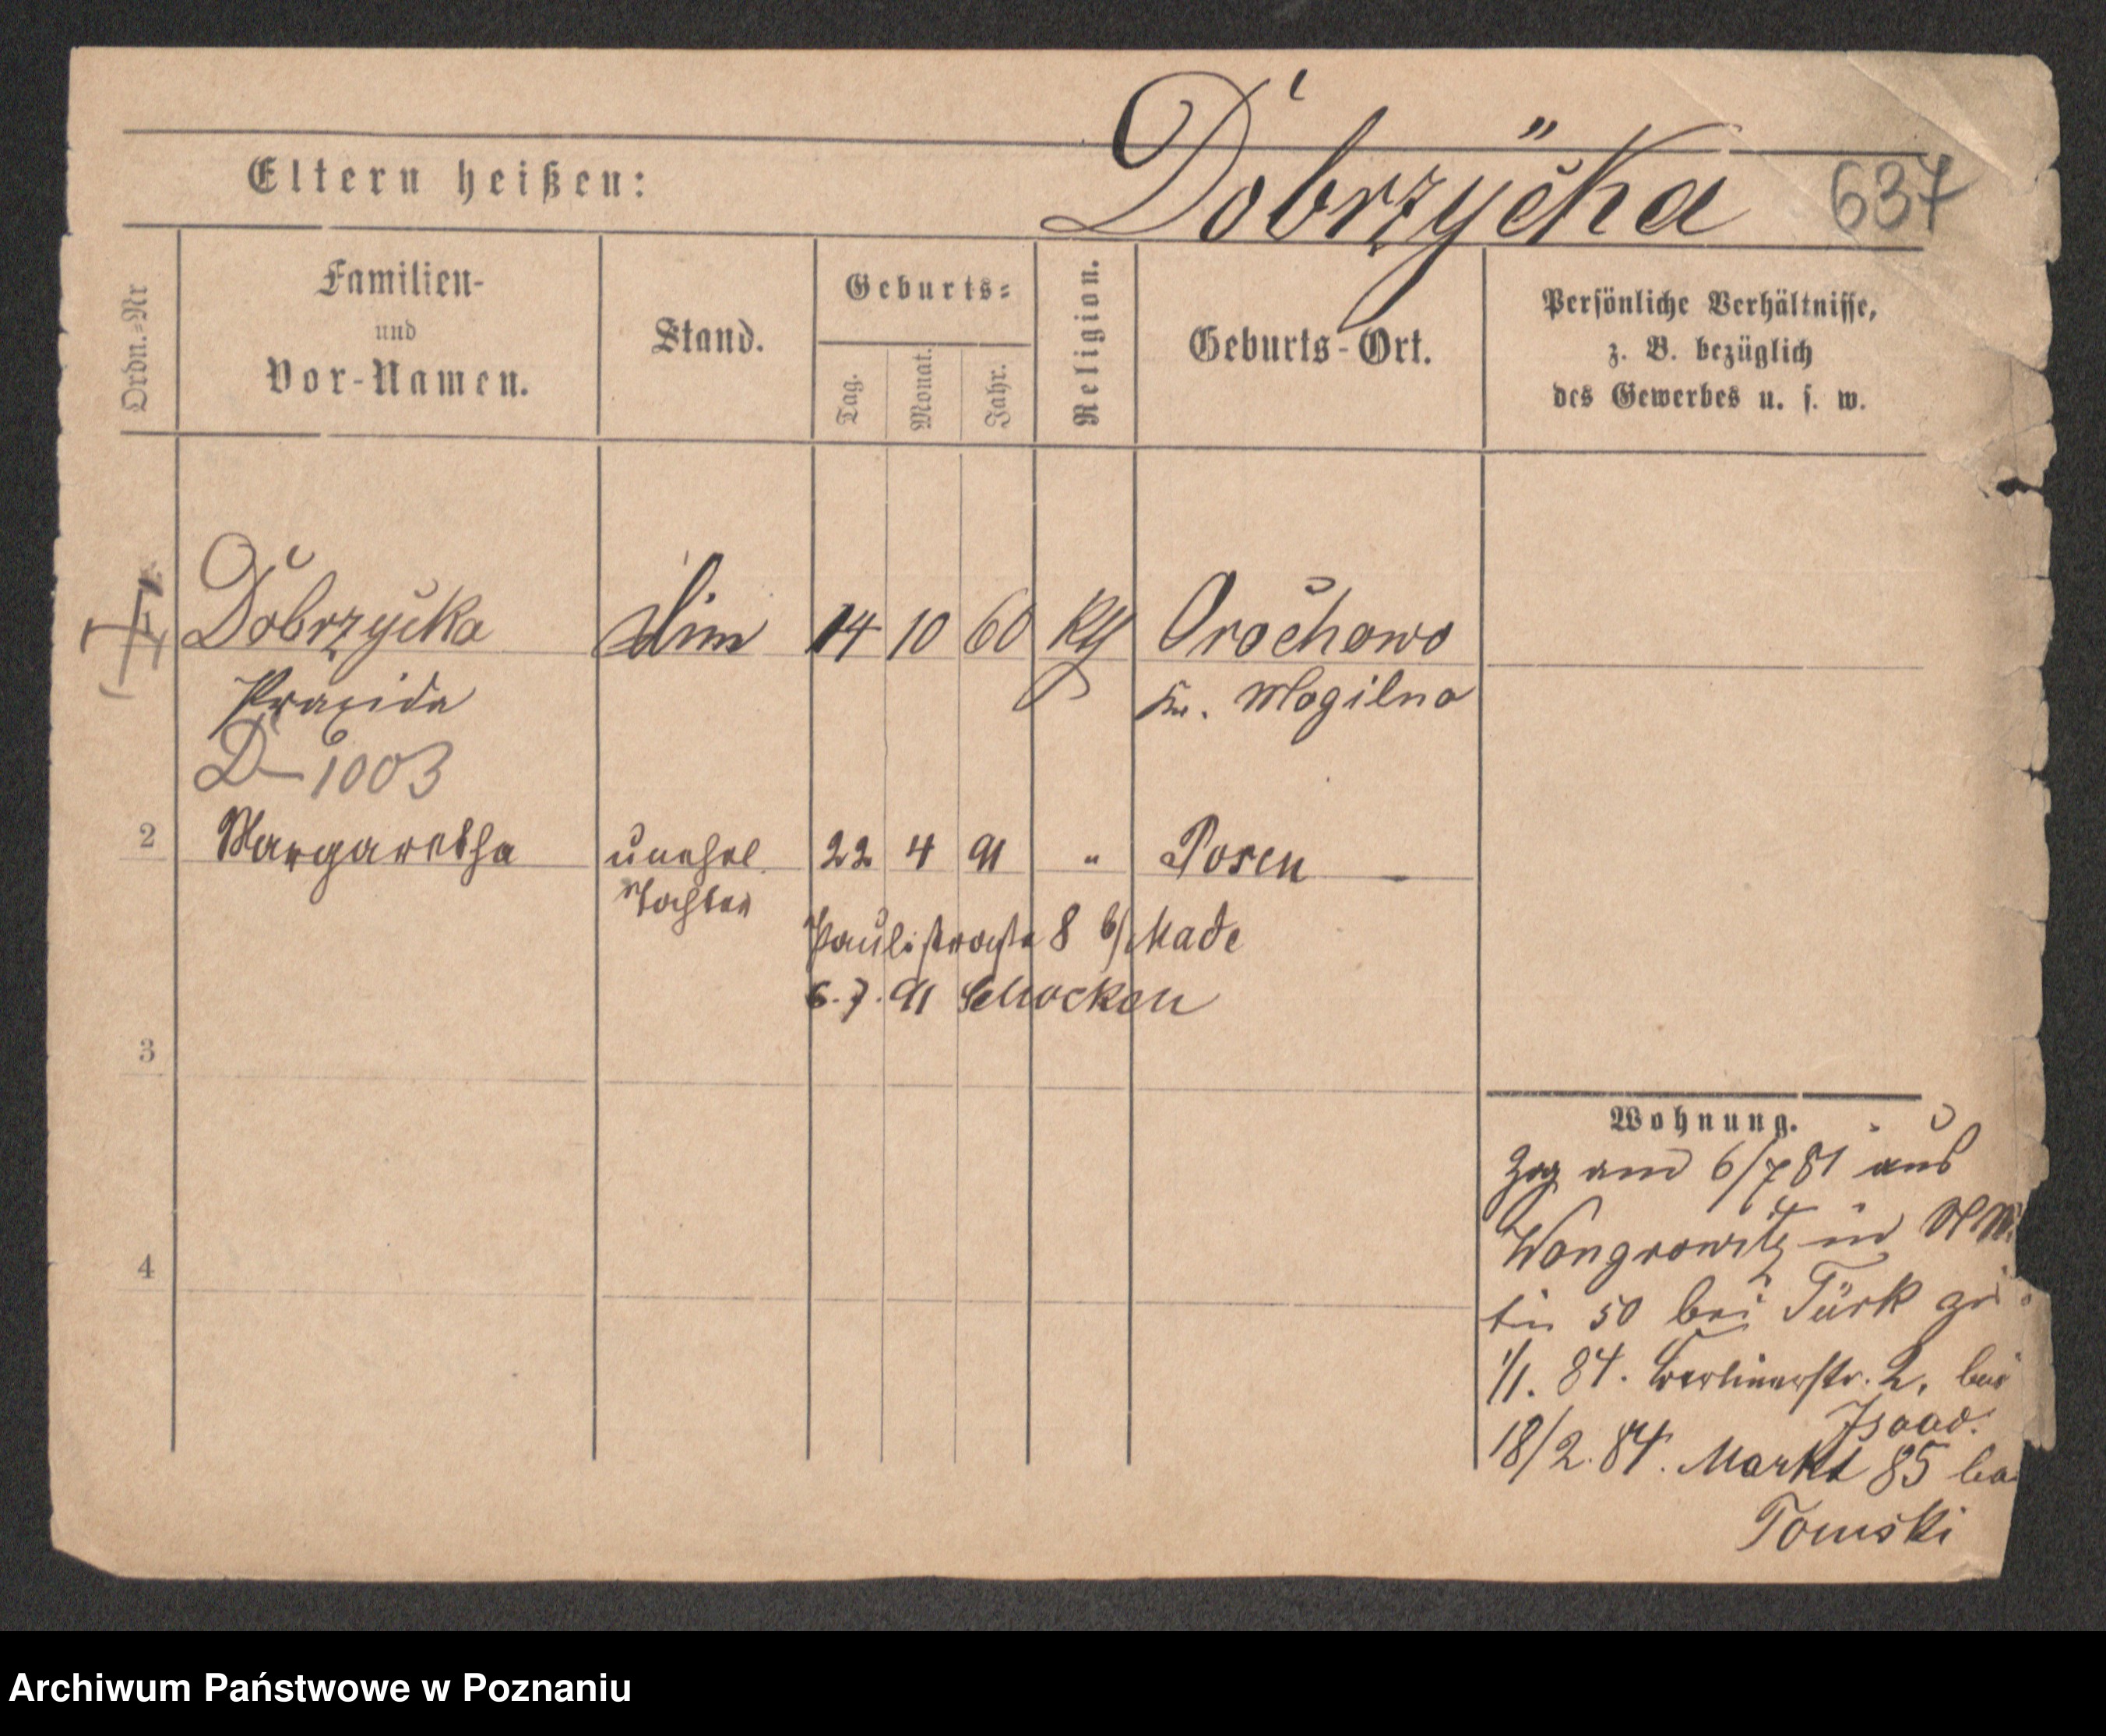 Dobrzycka 637
Eltern heißen:
Ordn.=Nr
Familien-
und
Vor-Namen.
Stand.
Geburts=
Tag.
Monat.
Jahr.
Religion.
Geburts-Ort.
Persönliche Verhältnisse,
z. B. bezüglich
des Gewerbes u. s. w.
Dobrzycka 14 10 60 Orchowo
Praxida Kr. Mogilno
D-1003
2 Margaretha unehel. 22 4 91 " Posen
Tochter
Paulistraße 8 b/ Made
6. 7. 91 Schocken
3
4
Wohnung.
Zog am 6/7 81 aus
Wongrowitz in St. M
tin 50 bei Türk
1/1. 84. Berlinerstr. 2, bei
18/2. 84. Markt 85
Tomski
Archiwum Państwowe w Poznaniu